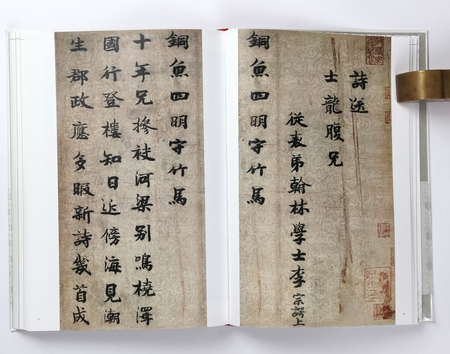 詩送
士龍腹兄
從表弟翰林學士李宗諤上
銅魚四明守竹馬
銅魚四明守竹馬
十年兄摻袂河梁別鳴橈澤
國行登樓知日近傍海見潮
生郡政應多暇新詩幾首成